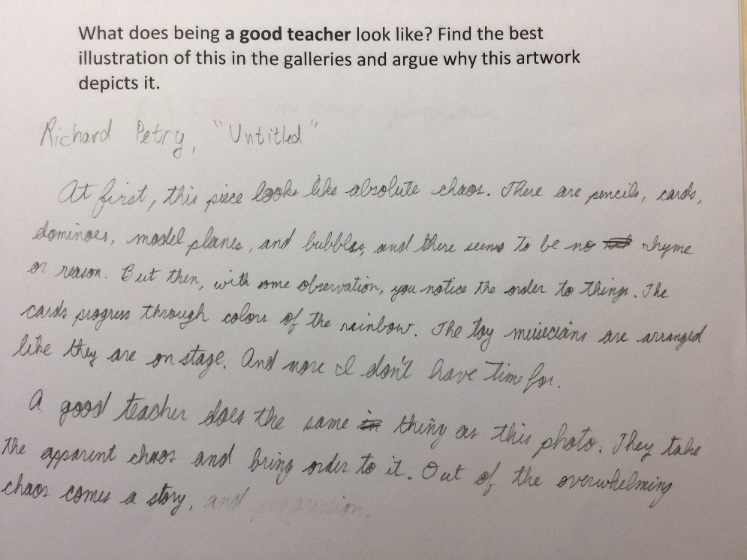 What does being a good teacher look like? Find the best
illustration of this in the galleries and argue why this artwork
depicts it.
Richard Petry, "Untitled"
At first, this piece looks like absolute chaos. There are pencils, cards,
dominoes, model planes, and bubbles, and there seems to be no rhyme
or reason. But then, with some observation, you notice the order to things. The
cards progress through colors of the rainbow. The toy musicians are arranged
like they are on stage. And more I don't have time for.
A good teacher does the same thing as this photo. They take
the apparent chaos and bring order to it. Out of the overwhelming
chaos comes a story, and